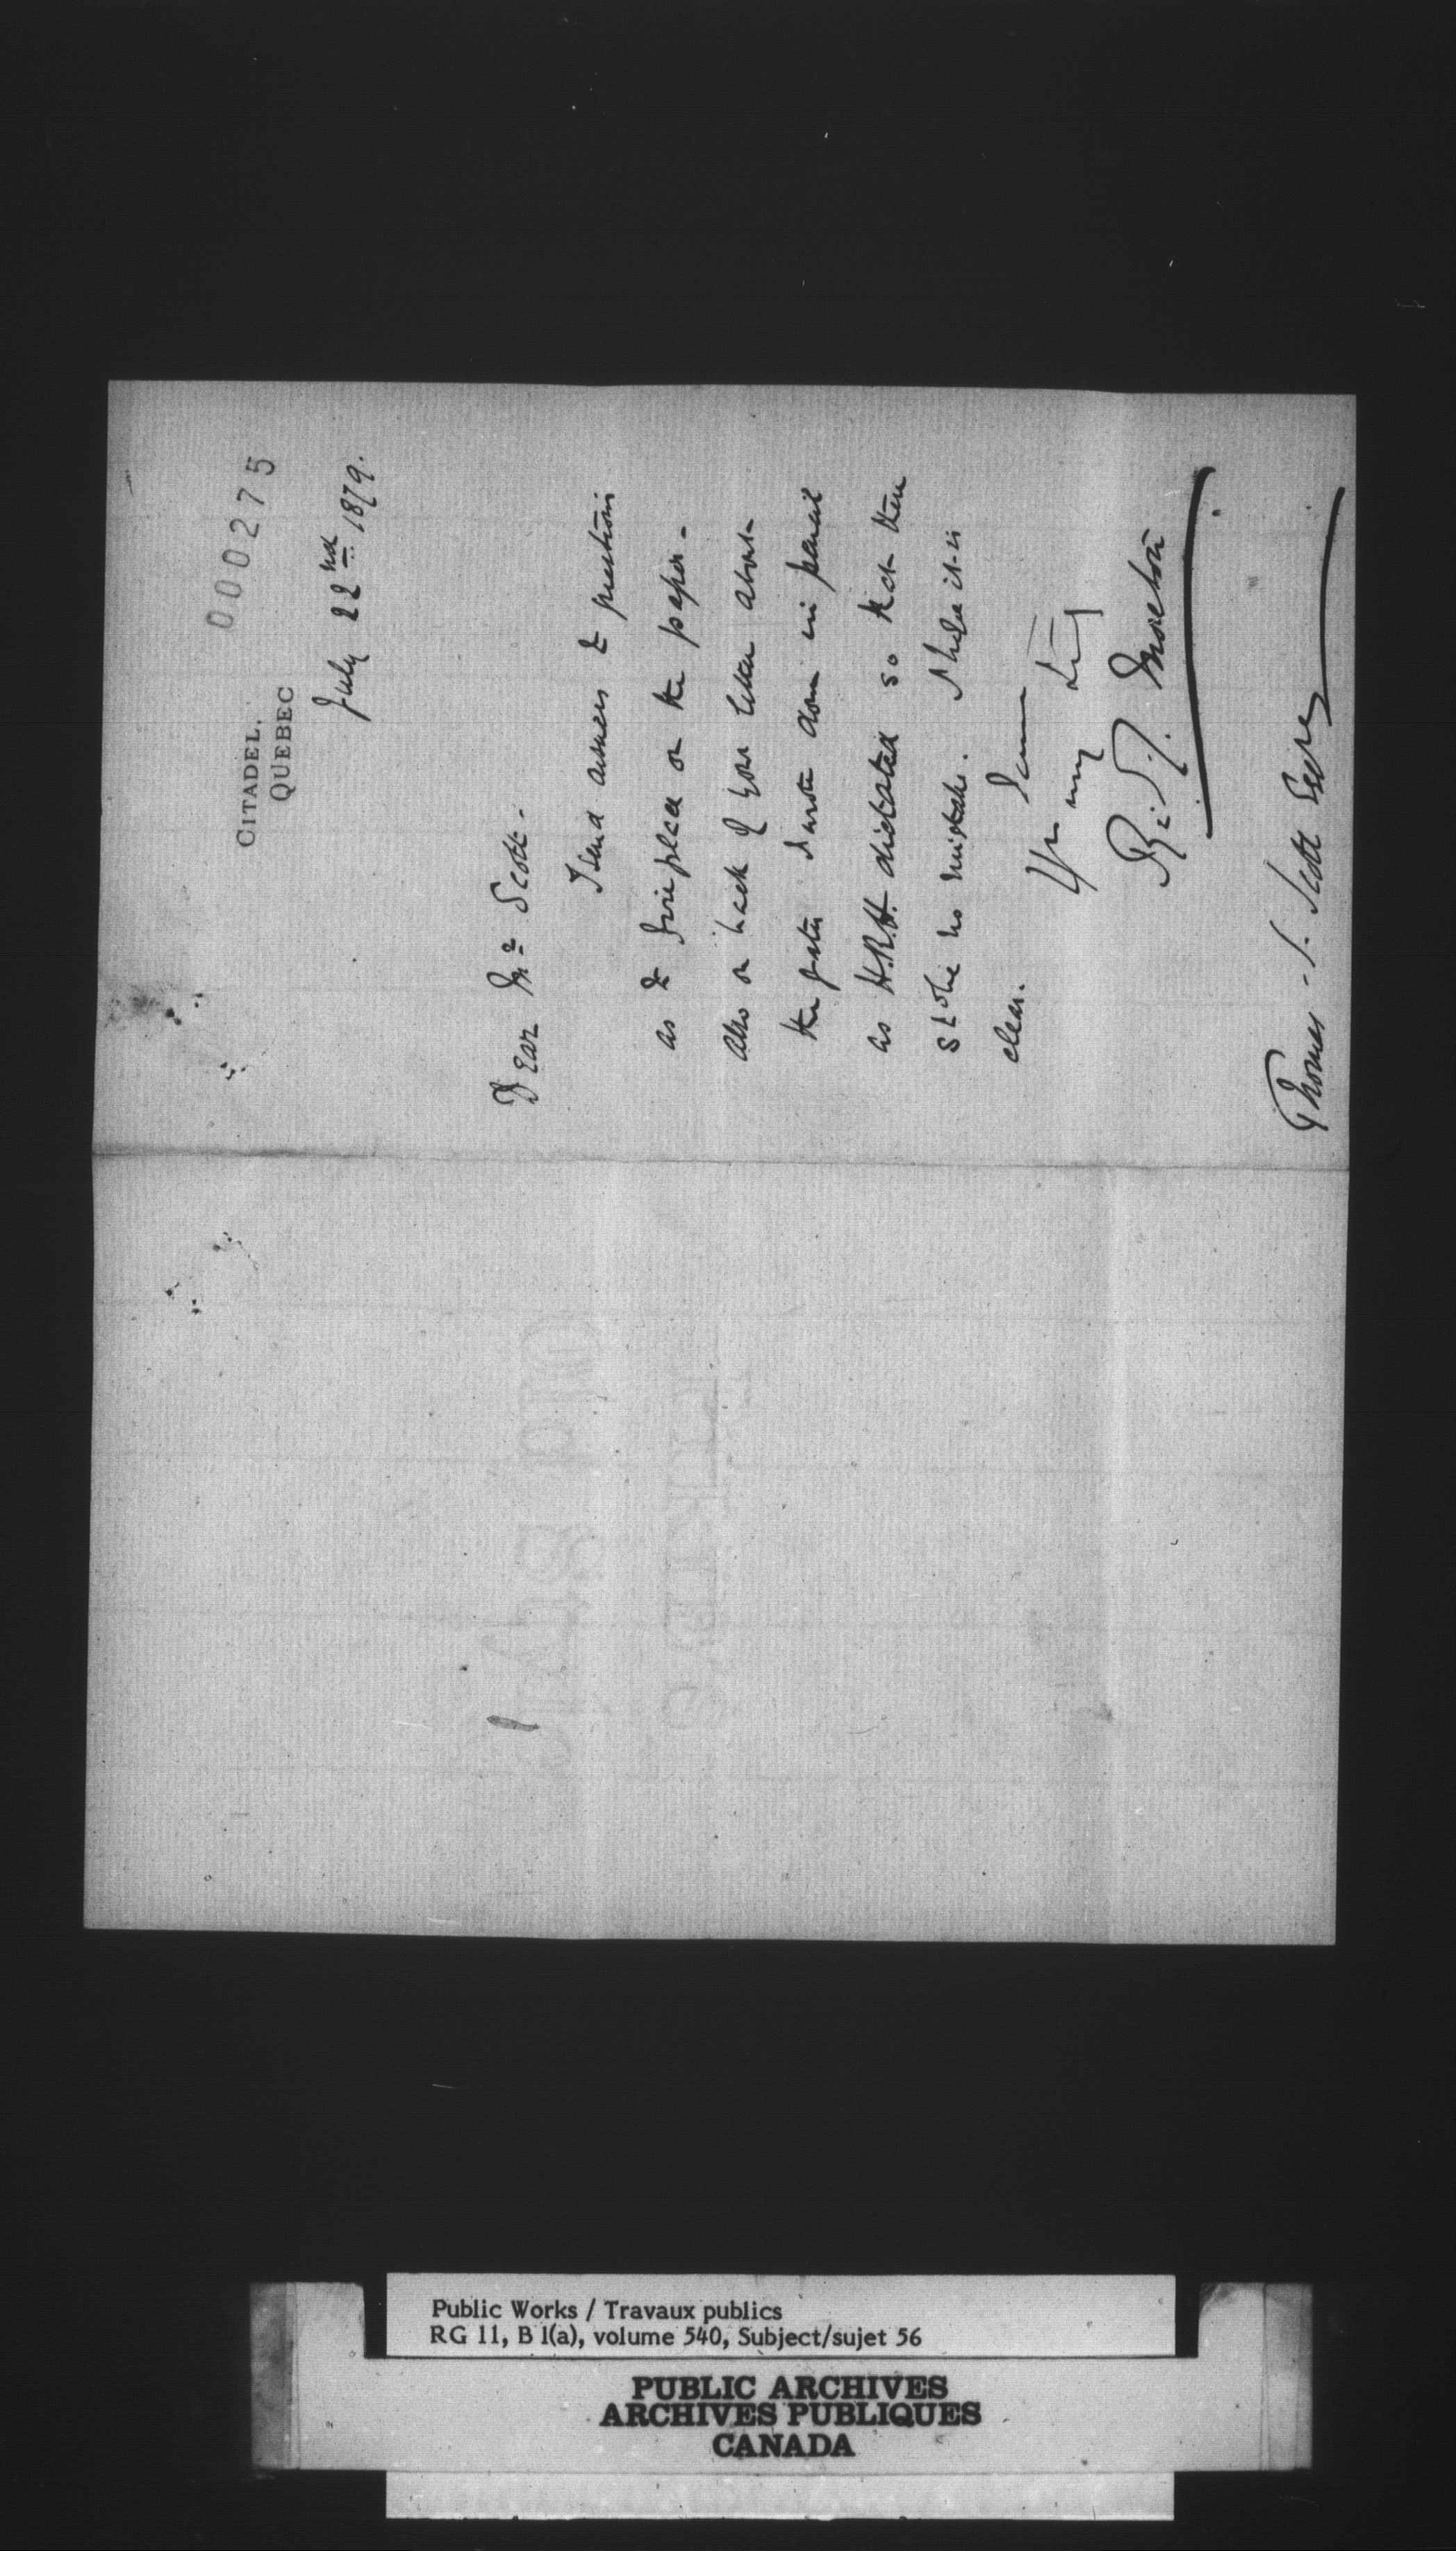 000275
CITADEL.
QUEBEC
July 22nd 1879.
Dear Mr Scott.
I send answers to questions
as to fireplaces on the paper.
Also on back of your letter about
the grates I wrote down in pencil
as H.R.H. dictated so that there
should be no mistake. I hope it is
clear. I am
Yrs very truly
R. Moreton
Thomas S. Scott Esqre
Public Works / Travaux publics
RG 11, B 1(a), volume 540, Subject/sujet 56
PUBLIC ARCHIVES
ARCHIVES PUBLIQUES
CANADA